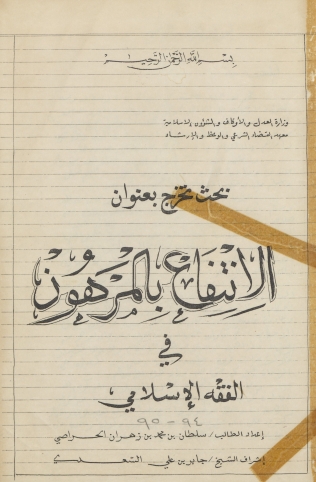 بسم الله الرحمن الرحيم
وزارة العدل والأوقاف والشئون الاسلامية
معهد القضاء الشرعي والوعظ والإرشاد
بحث تخرج بعنوان
الانتفاع بالمرهون
في
الفقه الإسلامي
٩٤ - ٩٥
إعداد الطالب / سلطان بن محمد بن زهران الحراصي
إشراف الشيخ / جابر بن علي السعدي